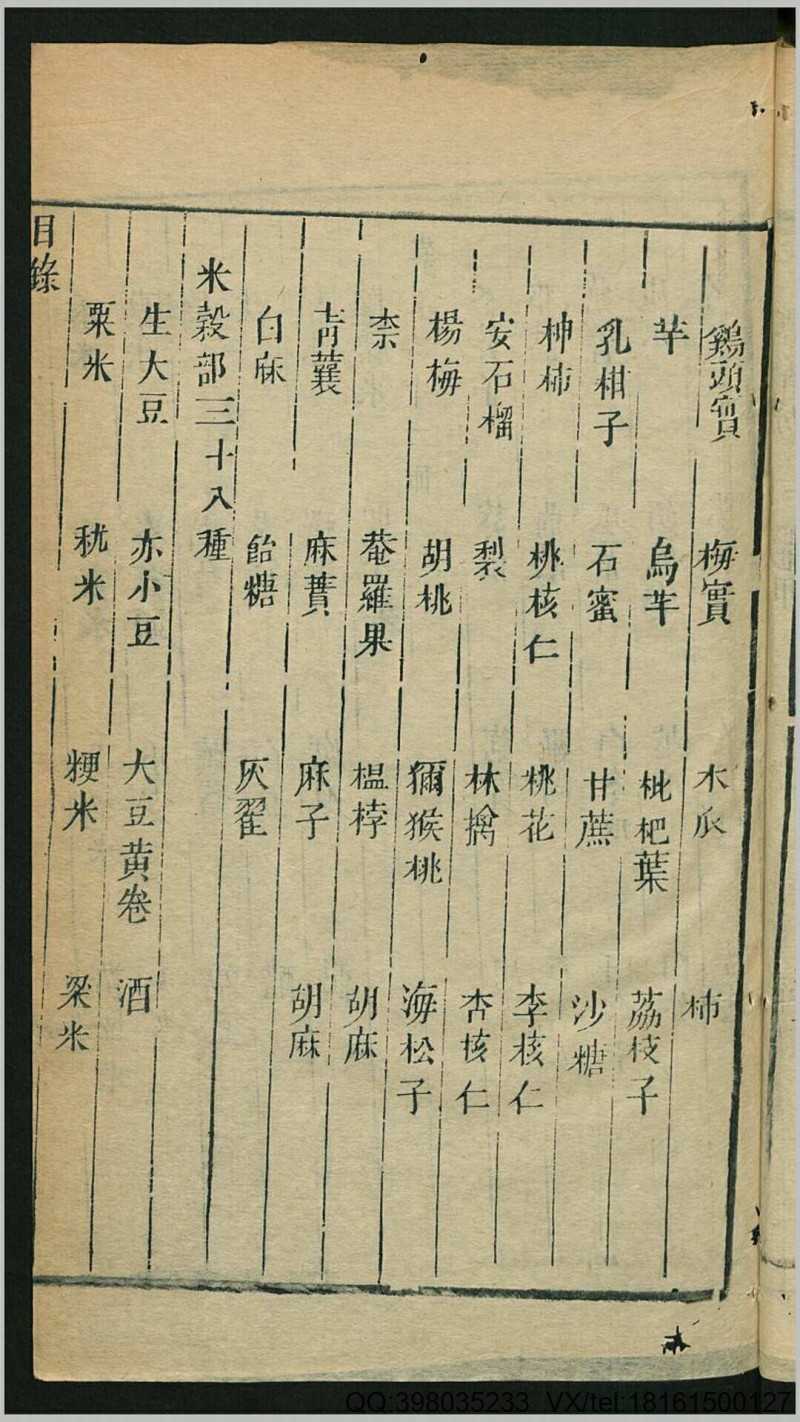 鷄頭實 梅實 木瓜 柿
芋 烏芋 枇杷葉 荔枝子
乳柑子 石蜜 甘蔗 沙糖
椑柿 桃核仁 桃花 李核仁
安石榴 梨 林擒 杏核仁
楊梅 胡桃 獼猴桃 海松子
柰 菴羅果 榲桲 胡麻
靑蘘 麻蕡 麻子 胡麻
白麻 飴糖 灰翟
米穀部三十八種
生大豆 赤小豆 大豆黃卷 酒
粟米 秫米 粳米 粱米
目錄
QQ:398035233 VX/tel:18161500127